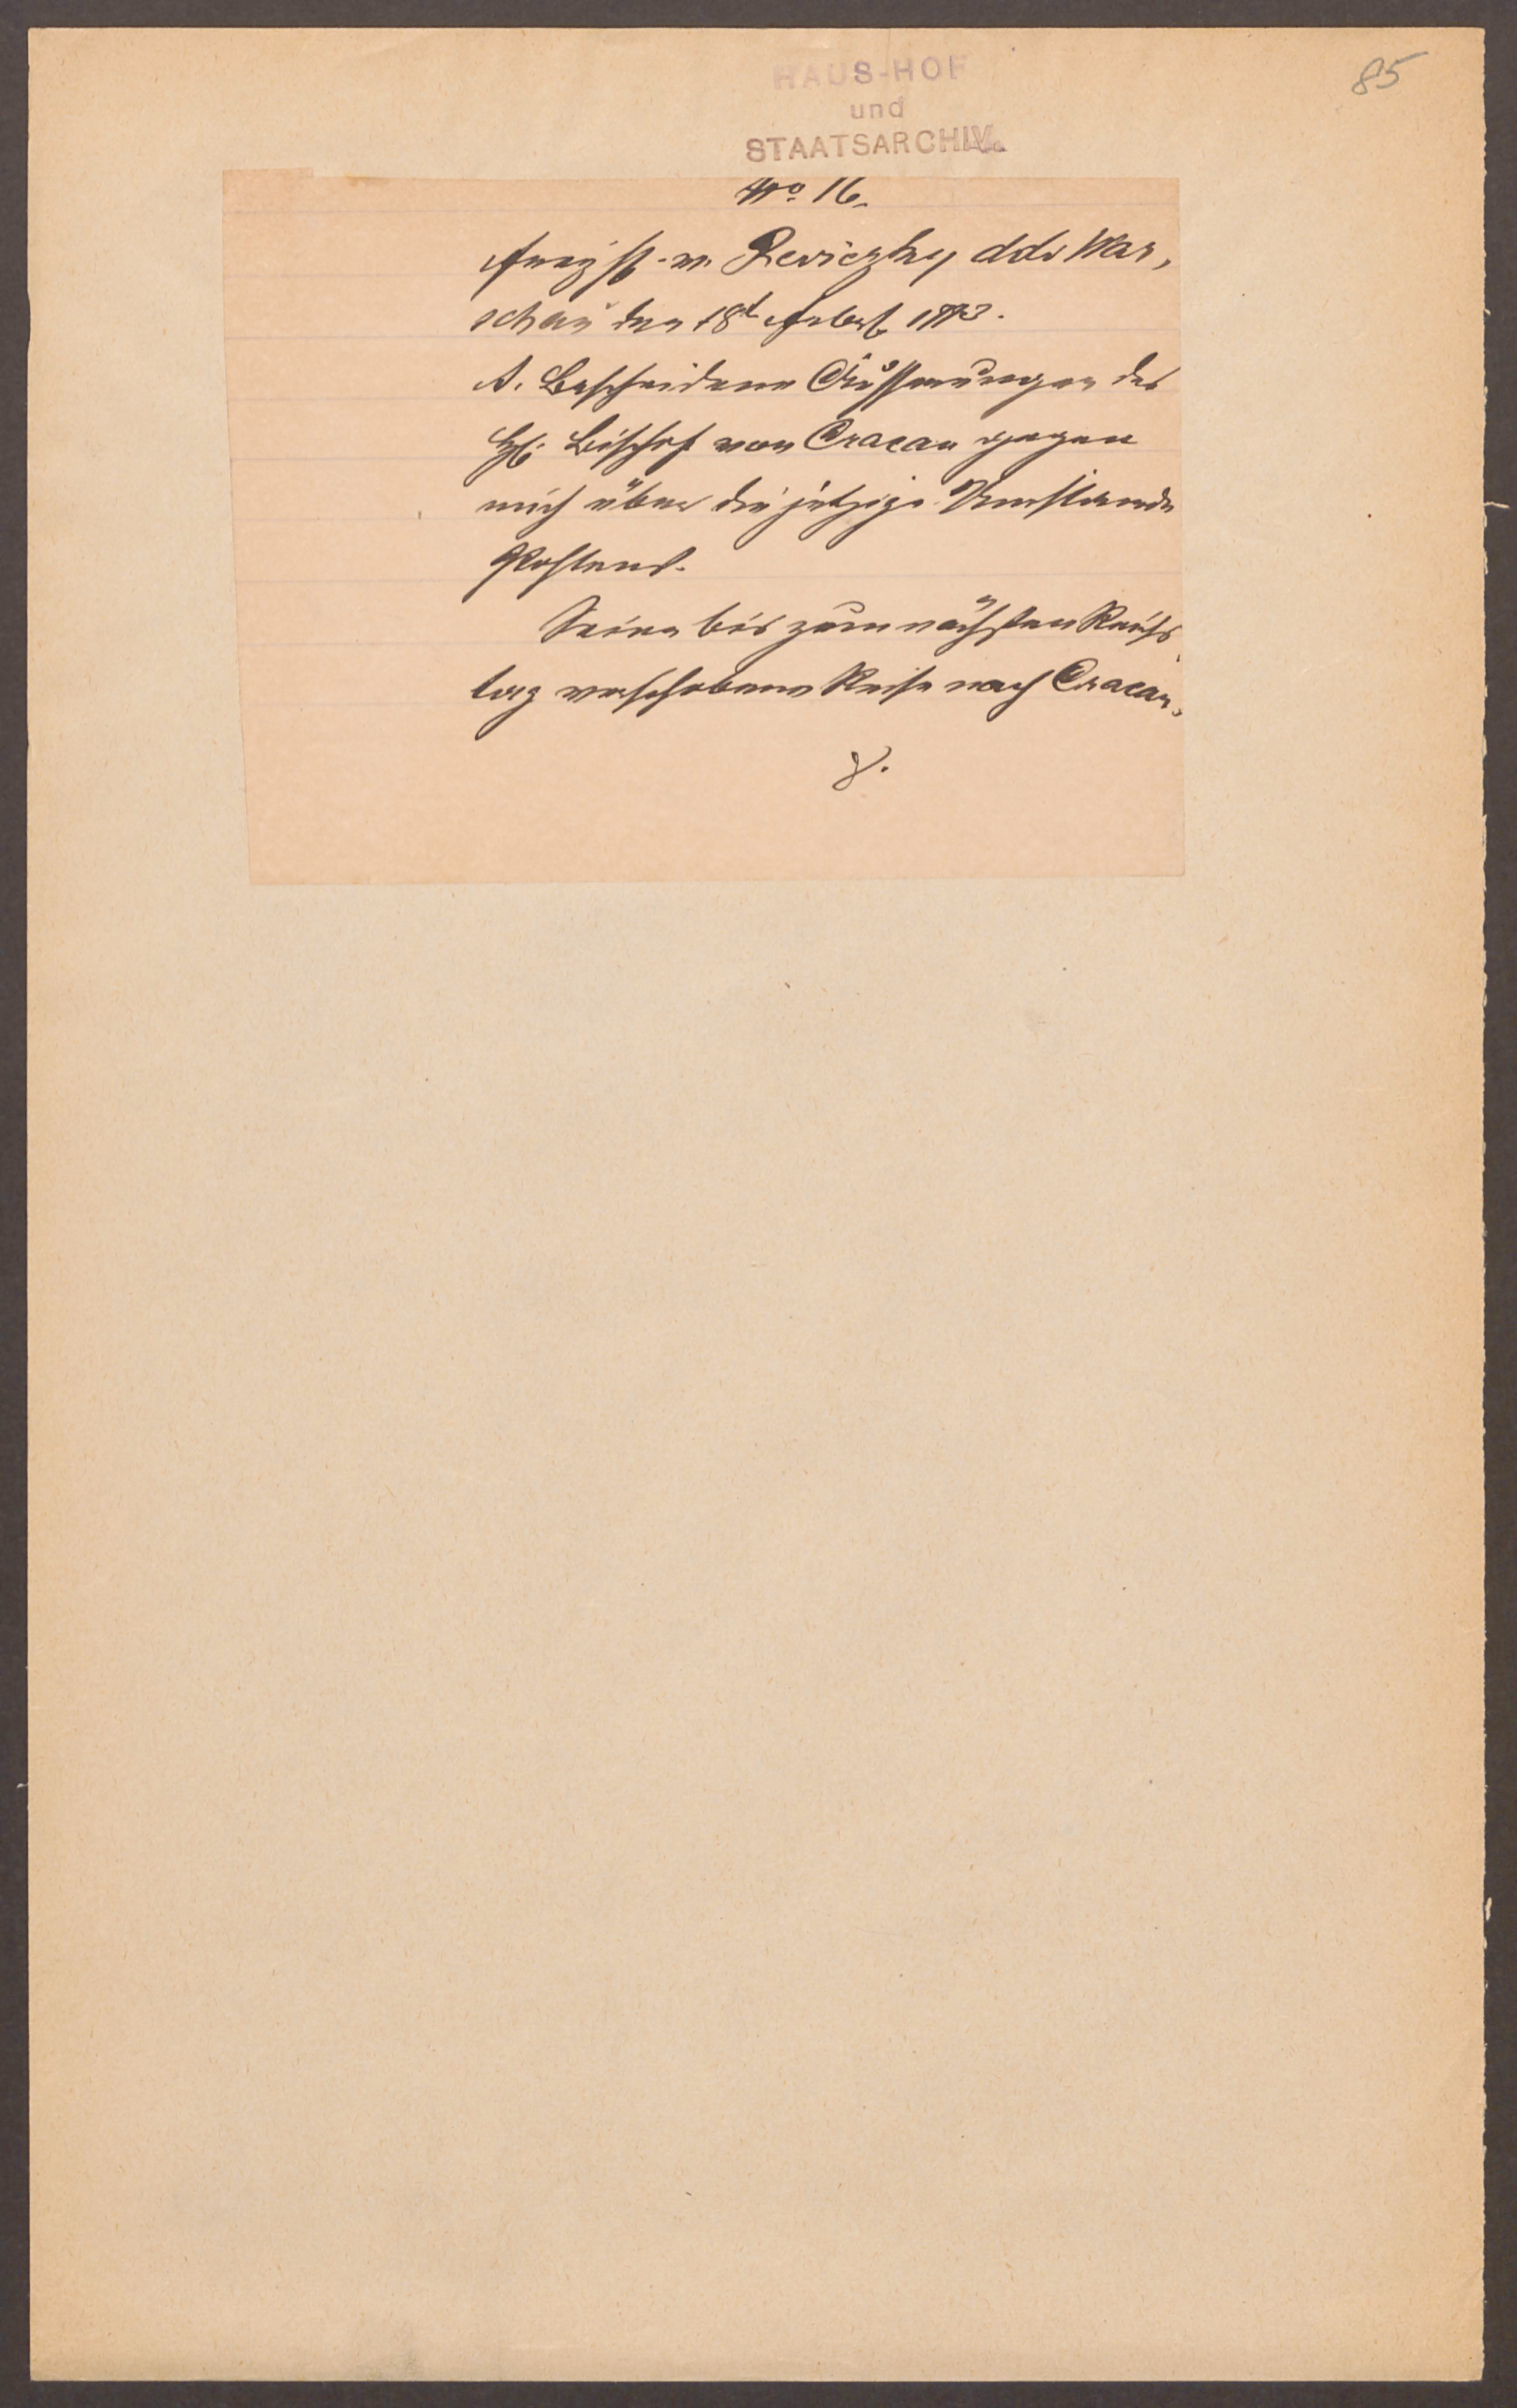 85
HAUS-HOF
und
STAATSARCHIV.
No 16.
v. Reviczky ddo War,
schau den 18t 1773.
A. Bescheidene Äusserungen des
H. Bischof von Cracau gegen
mich über die jetzige Umstände
Pohlens.
Seine bis zum nächsten Reichs,
tag verschobene Reise nach Cracau.